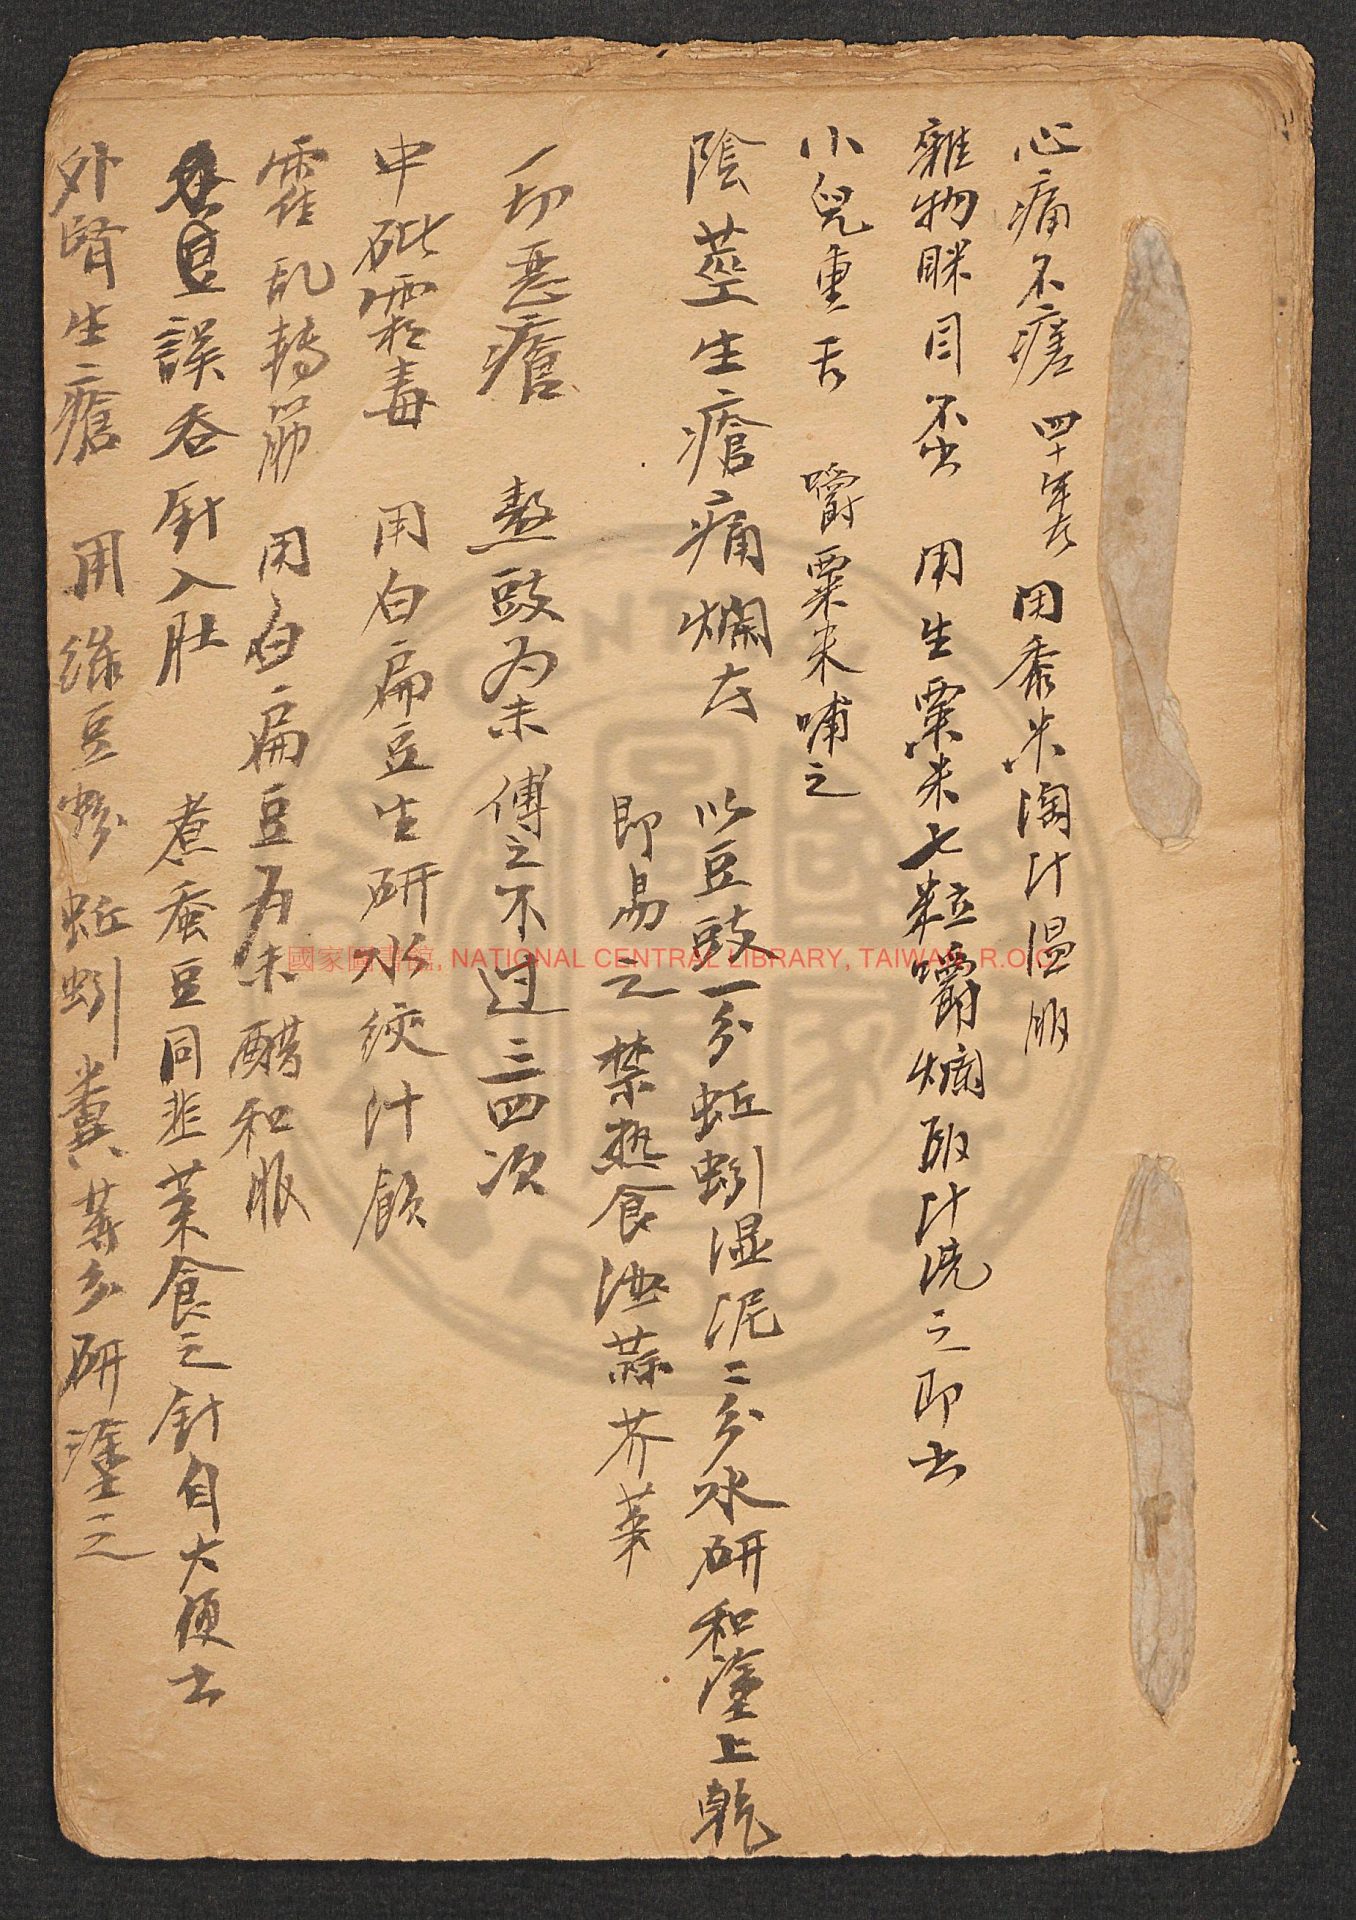 心痛不瘥 四十年者 用黍米淘汁温服
雜物眯目不出 用生粟米七粒嚼爛取汁洗之即出
小兒重舌 嚼粟米哺之
陰莖生瘡痛爛者 以豆豉一分蚯蚓湿泥二分水研和塗上乾
即易之禁热食酒蒜芥菜
一切惡瘡 熬豉为末傅之不过三四次
中砒霜毒 用白扁豆生研水絞汁飲
霍乱轉筋 用白扁豆为末醋和服
誤吞針入肚 煮蚕豆同韭菜食之針自大便出
外腎生瘡 用绿豆粉蚯蚓糞等分研塗之
國家圖書館, NATIONAL CENTRAL LIBRARY, TAIWAN, R.O.C